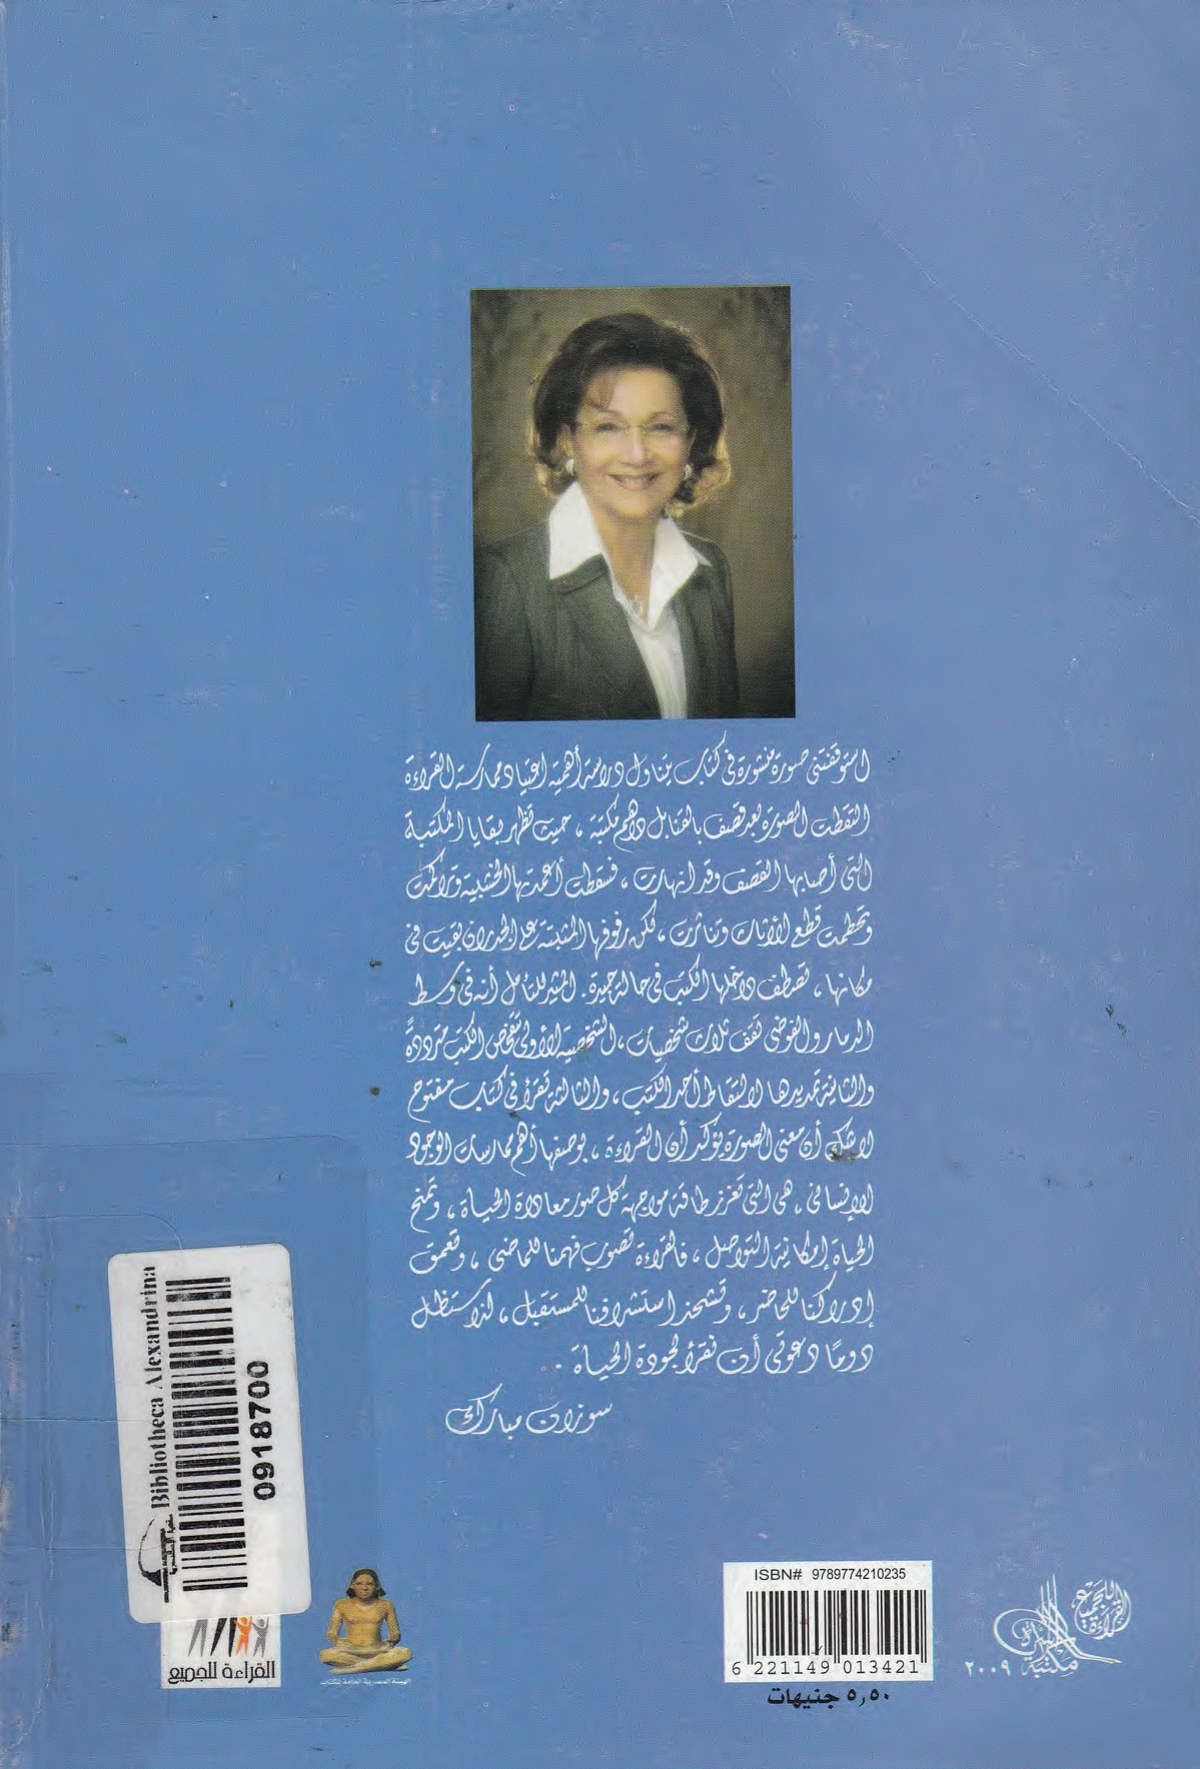 استوقفتنى صورة منشورة فى كتاب يتناول دراسة أهمية اعتياد ممارسة القراءة
التقطت الصورة بعد قصف بالقنابل داهم مكتبة ، حيث تظهر بقايا المكتبة
التى أصابها القصف وقد انهارت ، فسقطت أعمدتها الخشبية وتراكمت
وتحطمت قطع الأثاث وتناثرت ، لكن رفوفها المثبتة على الجدران بقيت فى
مكانها ، تصطف داخلها الكتب فى حالة جيدة . المثير للتأمل أنه فى وسط
الدمار والفوضى تقف ثلاث شخصيات ، الشخصية الأولى تتفحص الكتب مترددةً
والثانية تمد يدها لالتقاط أحد الكتب ، والثالثة تقرأ فى كتاب مفتوح
لا شك أن معنى الصورة يؤكد أن القراءة ، بوصفها أهم ممارسات الوجود
الإنسانى ، هى التى تعزز طاقة مواجهة كل صور معاداة الحياة ، وتمنح
الحياة إمكانية التواصل ، فالقراءة تصوب فهمنا للماضى ، وتعمق
إدراكنا للحاضر ، وتشحذ استشرافنا للمستقبل ، لذا ستظل
دومًا دعوتى أن نقرأ لجودة الحياة .
سوزان مبارك
Bibliotheca Alexandrina
مكتبة الإسكندرية
0918700
القراءة للجميع
الهيئة المصرية العامة للكتاب
ISBN# 9789774210235
6 221149 013421
٥,٥٠ جنيهات
القراءة للجميع
مكتبة الأسرة
٢٠٠٩